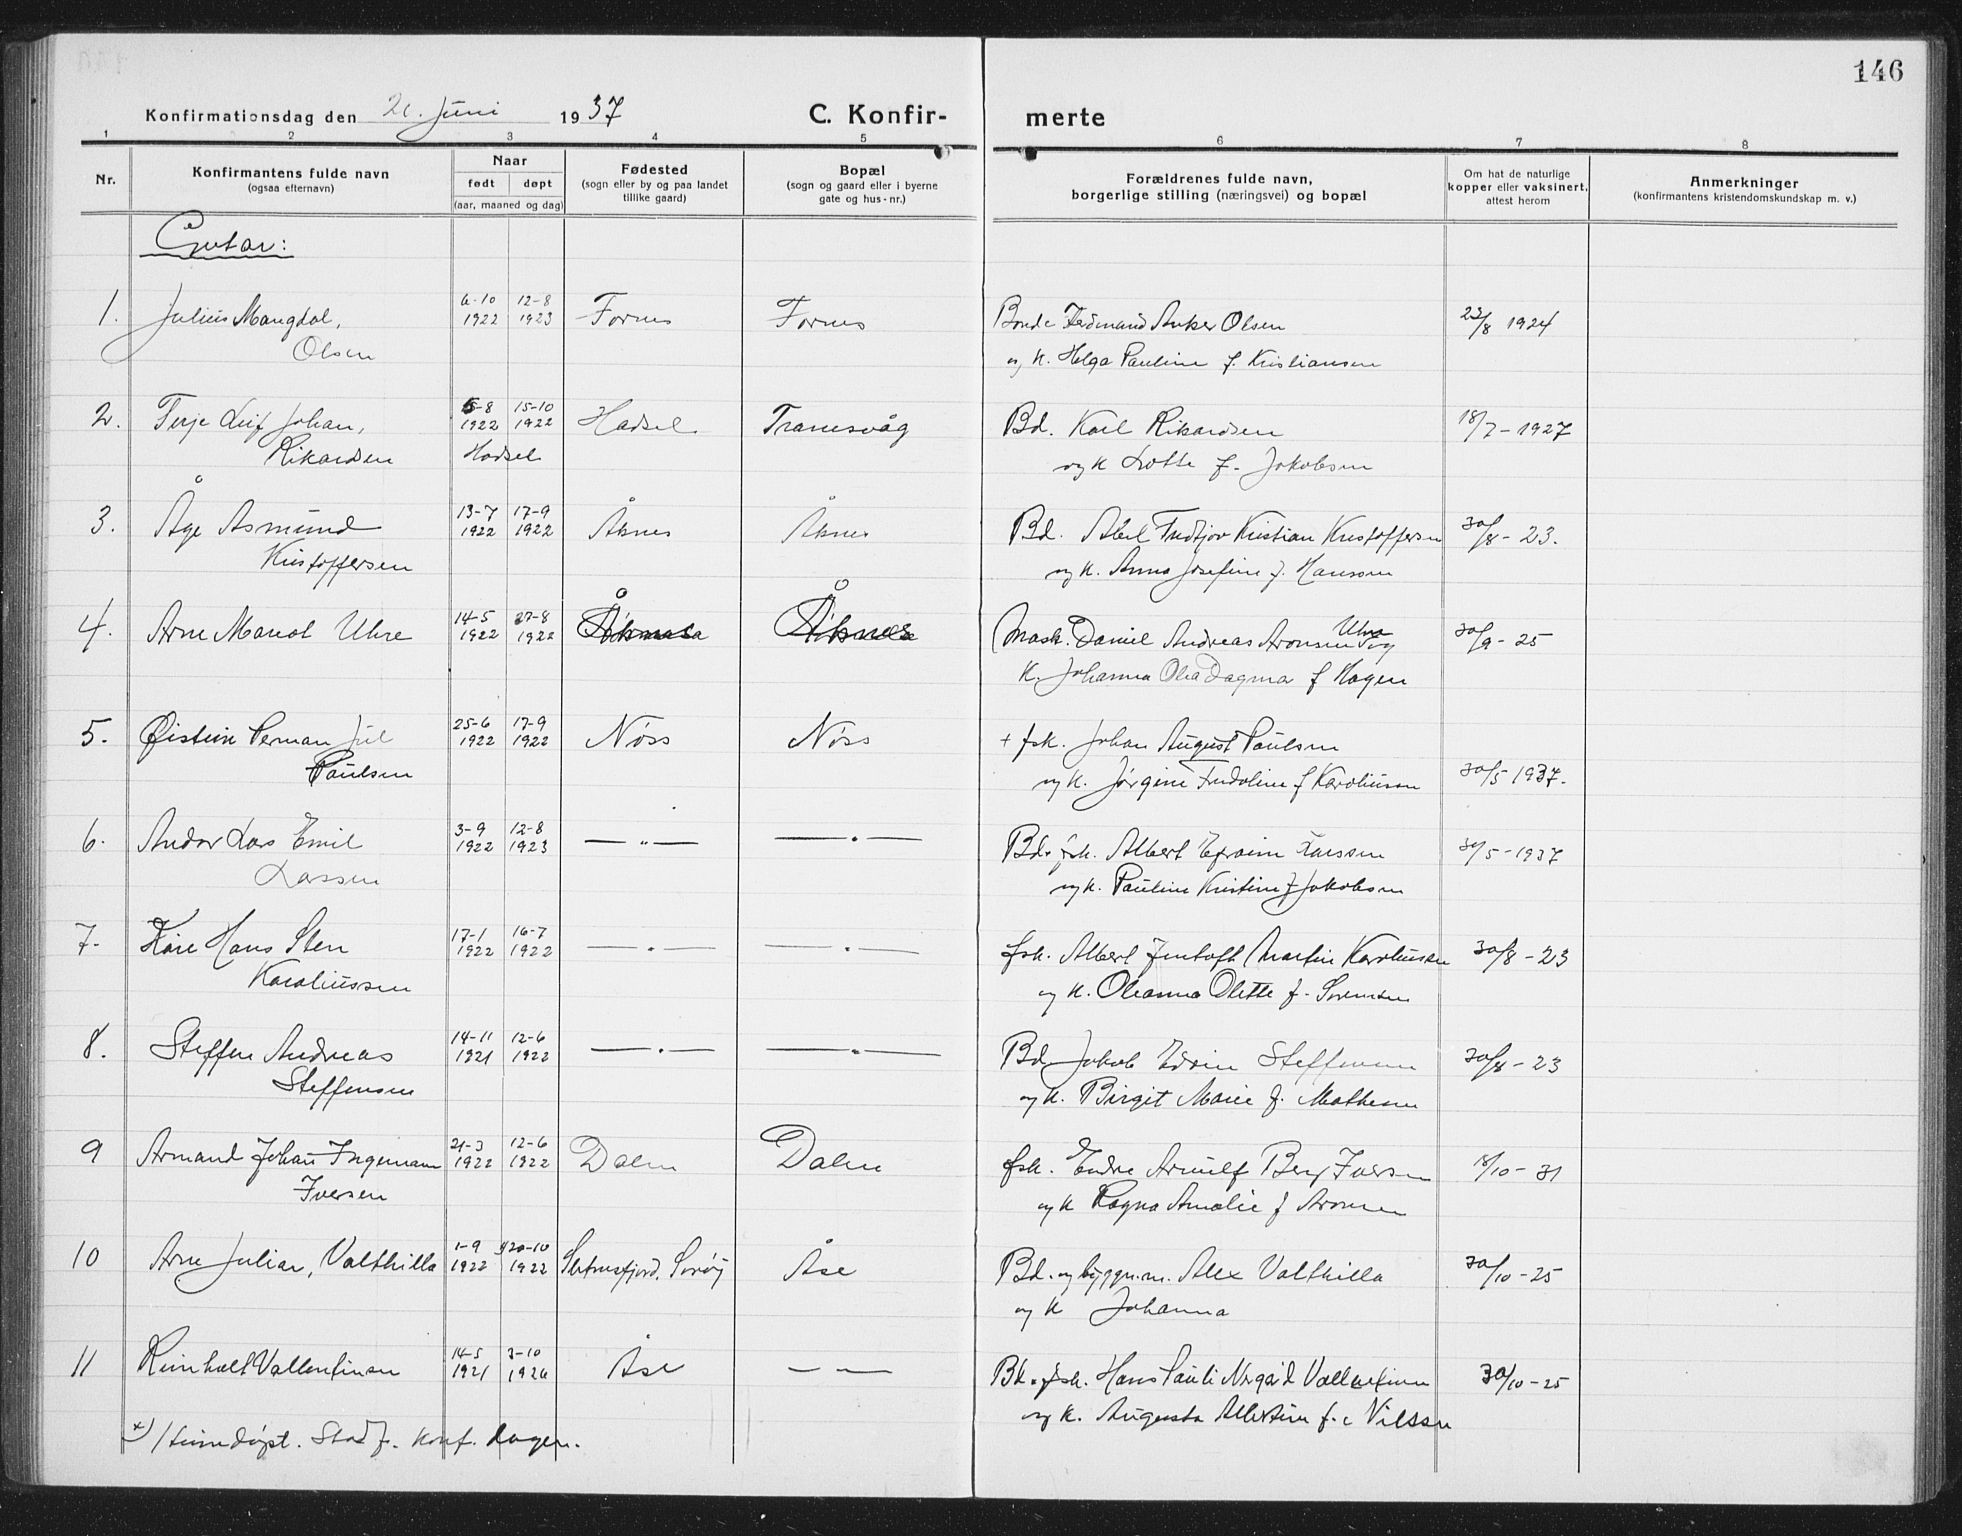 146
Konfirmationsdag den 20. Juni 1937 C. Konfir-
merte
1 2 3 4 5 6 7 8
Nr.
Konfirmantens fulde navn
(ogsaa efternavn)
Naar
født døpt
(aar, maaned og dag)
Fødested
(sogn eller by og paa landet
tillike gaard)
Bopæl
(sogn og gaard eller i byerne
gate og hus-nr.)
Forældrenes fulde navn,
borgerlige stilling (næringsvei) og bopæl
Om hat de naturlige
kopper eller vaksinert,
attest herom
Anmerkninger
(konfirmantens kristendomskundskap m. v.)
Gutar:
1. Julius Mangdal, 6-10 12-8 Fornes Fornes Bonde Ferdinand Anker Olsen 23/8 1924
Olsen 1922 1923 og k. Helga Pauline f. Kristiansen
2. Terje Leif Johan, 5-8 15-10 Hadsel Tranesvåg Bd. Karl Rikardsen 18/7-1927
Rikardsen 1922 1922 Hadsel og k Lotte f. Jakobsen
3. Åge Asmund 13-7 17-9 Åknes Åknes Bd. Abel Fridtjov Kristian Kristoffersen 30/8-23.
Kristoffersen 1922 1922 og k. Anna Josefine f. Hanssen
4. Arne Marot Uhre 14-5 27-8 Mask. Daniel Andreas Aronsen Uhre og 30/9-25
1922 1922 k. Johanna Olea Dagma f Hagen
5. Øistein Herman Jul 25-6 17-9 Nöss Nöss + fsk. Johan August Paulsen
Paulsen 1922 1922 og k. Jørgine Fridoline f Karoliussen 30/5 1937.
6. Andor Lars Emil 3-9 12-8 —"— —"— Bd. fsk. Albert Efraim Larssen 30/5-1937
Larssen 1922 1923 og k. Pauline Kristine f Jakobsen
7. Kåre Hans Sten 17-1 16-7 —"— —"— fsk. Albert Jentoft Martin Karoliussen 30/8-23
Karoliussen 1922 1922 og k. Oleanna Olette f. Sørensen
8. Steffen Andreas 14-11 12-6 —"— —"— Bd. Jakob Edvin Steffensen 30/8-23
Steffensen 1921 1922 og k. Birgit Marie f. Mathesen
9 Armand Johan Ingemann 21-3 12-6 Dalen Dalen fsk. Endre Arnulf Berg Iversen 18/10-31
Iversen 1922 1922 og k Ragna Amalie f Aronsen
10 Arne Julian, Valthilla 1-9 20-10 Åse Bd. og byggm. Alex Valthilla 30/10-25
1922 1922 og k Johanna
11 Reinholt Vallentinsen 14-5 3-10 Åse — — Bd. og fsk. Hans Pauli Norgård Vallentinsen 30/10-25
1921 1926 og k. Augusta Albertine f. Nilssen
x) Heimedøpt. Stadf. konf. dagen.